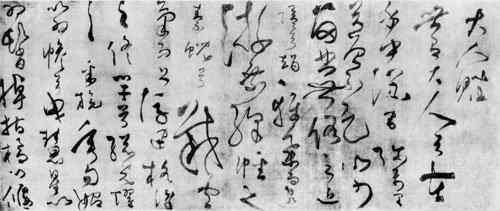 大人賦
世有大人兮在
乎中州宅彌萬里
兮曾不足以少
留悲世俗之迫
隘兮朅輕舉而遠
遊乘絳幡之
素蜺兮載雲
氣而上浮建格澤
之修竿兮總光耀
之采旄垂旬始
以為幓兮曳彗星而
為髾掉指橋以偃